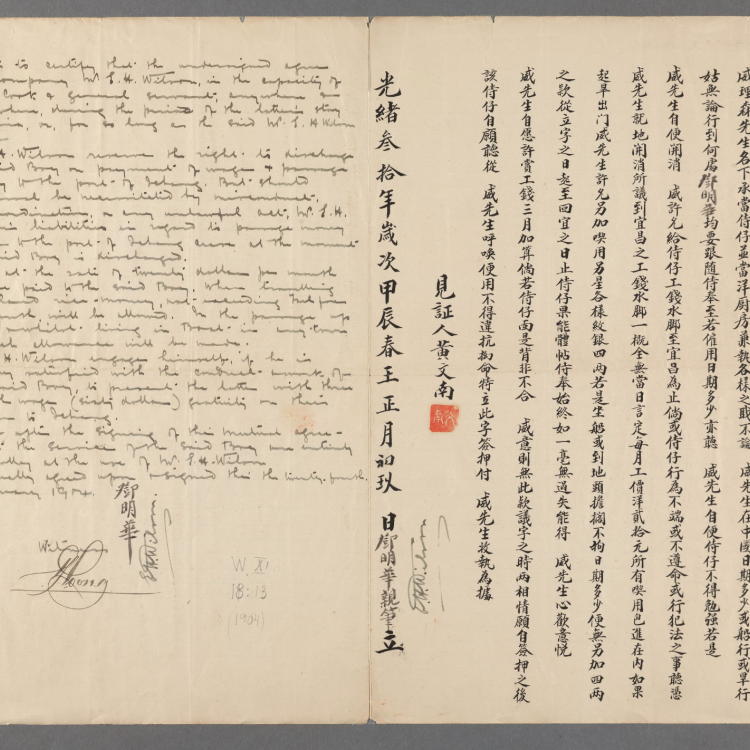 is to certify that the undersigned agree
company Mr. E.H. Wilson, in the capacity of
Cook & general servant, anywhere in
during the period of the latter's stay
or, for so long as the said Mr. E.H. Wilson
H. Wilson reserve the right to discharge
said Boy on payment of wage & passage
to the port of Ichang. But should
be necessitated by misconduct,
insubordination, or any unlawful act, Mr. E.H.
liabilities in regard to passage money
to the port of Ichang cease at the moment
said Boy is discharged.
at the rate of twenty dollars per month
be paid to the said Boy. When travelling
month will be allowed. In the passage up
whilst living in Boat
allowance will be made.
H. Wilson engages himself, if he is
satisfied with the conduct
said Boy, to present the latter with three
wage (sixty dollars) gratuity on their
to Ichang.
after the signing of this mutual agree-
the services of the said Boy are entirely
at the use of Mr. E.H. Wilson
agreed upon & signed this the twenty-fourth
1904.
鄧明華
E.H. Wilson
W XI
18:13
(1904)
威理森先生名下承當侍仔並當洋厨房兼執各樣之職不論 威先生在中國日期多少或船行或旱行
姑無論行到何處鄧明華均要跟隨侍奉至若僱用日期多少亦聽 威先生自便侍仔不得勉強若是
威先生自便開消 威許允給侍仔工錢水脚至宜昌為止倘或侍仔行為不端或不遵命或行犯法之事聽憑
威先生就地開消所議到宜昌之工錢水脚一概全無當日言定每月工價洋貳拾元所有喫用包進在内如果
起早出门威先生許允另加喫用另星各樣紋銀四两若是坐船或到地頭擔擱不拘日期多少便無另加四两
之欵從立字之日起至回宜之日止侍仔果能體帖侍奉始終如一毫無過失能得 威先生心歡意悦
威先生自愿許賞工錢三月加算倘若侍仔面是背非不合 威意則無此欵議字之時两相情願自簽押之後
該侍仔自願聽從 威先生呼喚使用不得違抗拗命特立此字簽押付 威先生收執為據
見証人黄文南
E.H. Wilson
光緒叁拾年歲次甲辰春王正月初玖 日鄧明華親筆立